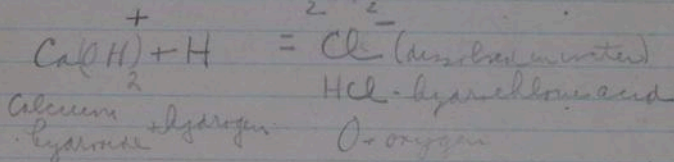 + 2 2 -
Ca(OH)2 + H = Cl (dissolved in water)
HCl - hydrochloric acid
Calcium hydroxide + hydrogen O - oxygen